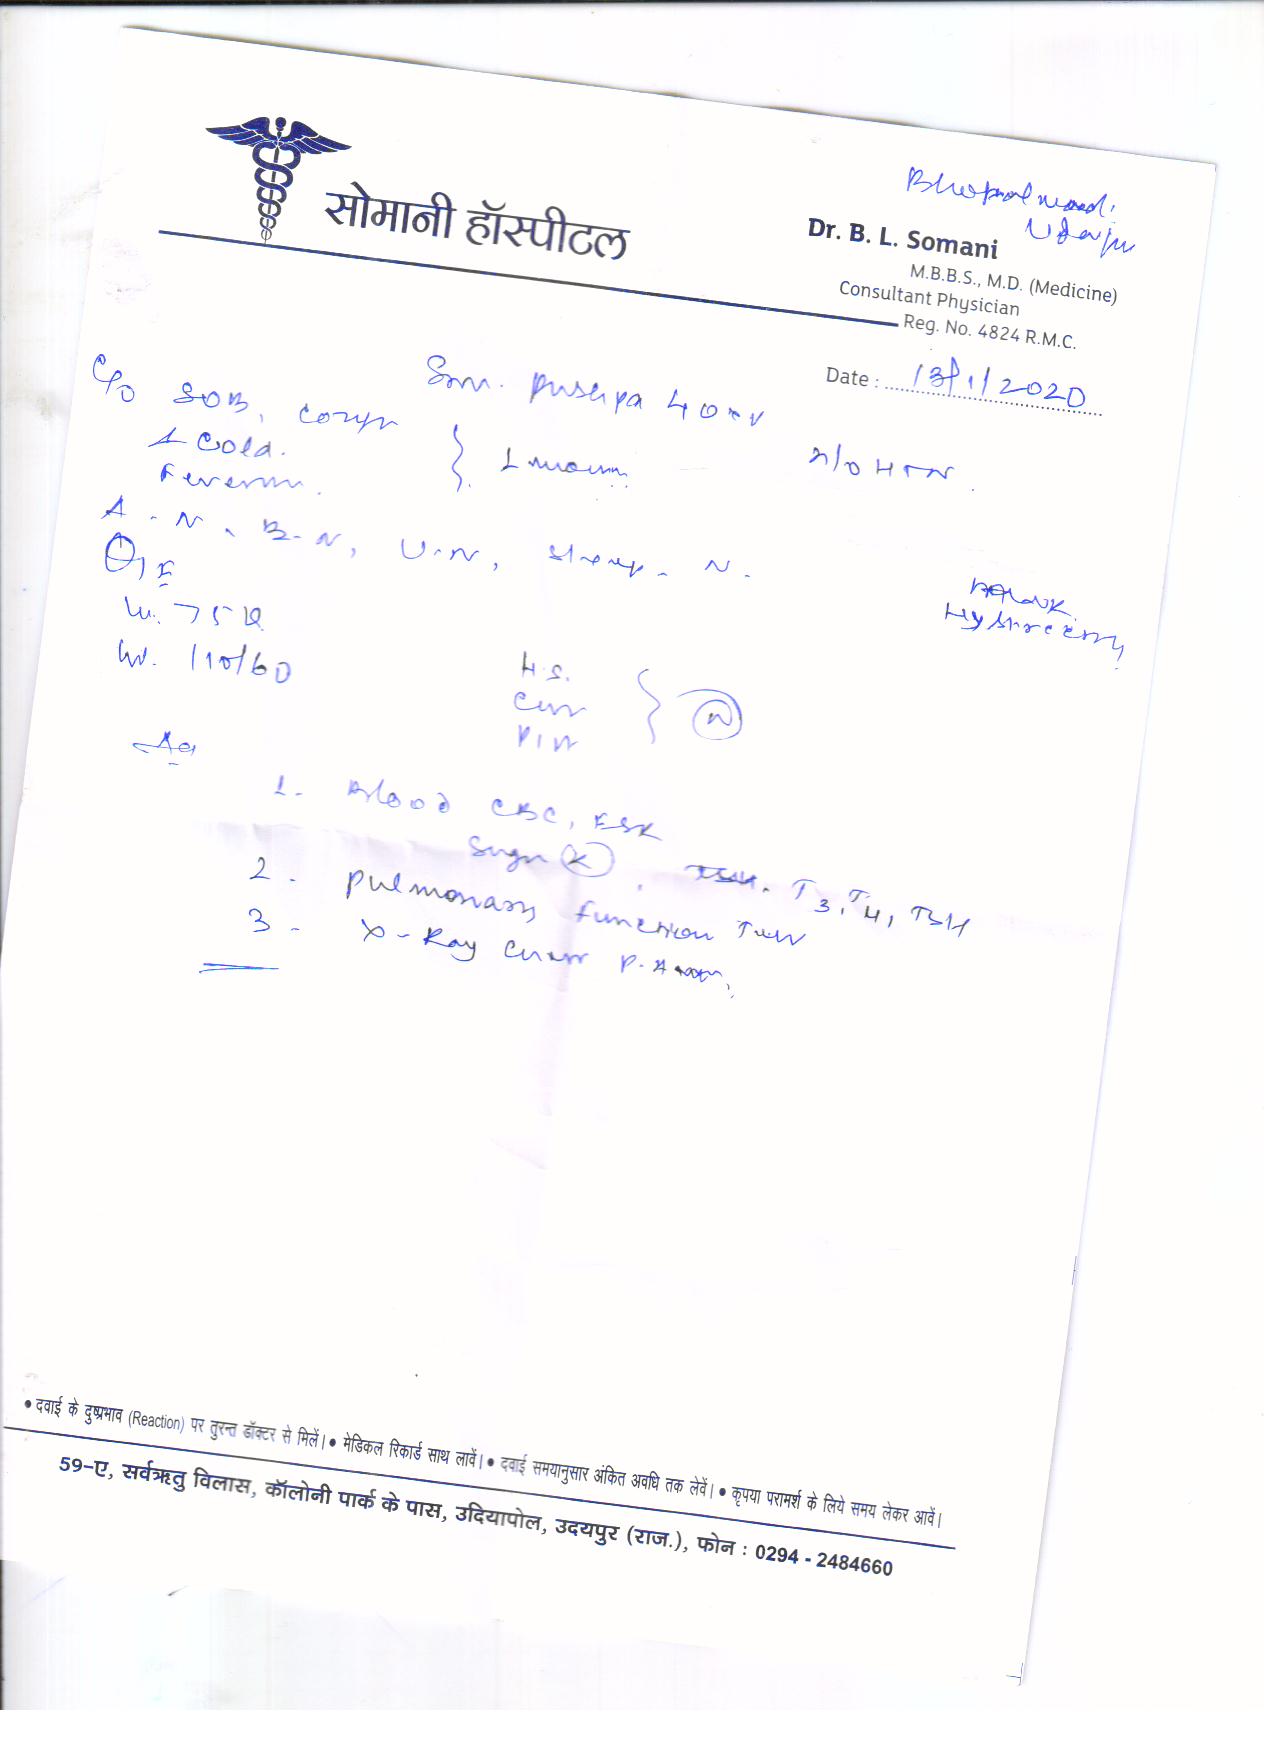 Bhopalwadi,
Udaipur
सोमानी हॉस्पीटल
Dr. B. L. Somani
M.B.B.S., M.D. (Medicine)
Consultant Physician
Reg. No. 4824 R.M.C.
Date : 13/1/2020
Smt. Pushpa 40
C/O SOB, Cough
& Cold.
Fever
1 month
H/O HTN.
A - N, B - N, U - N, Sleep - N.
O/E
Wt. 75 K
110/60
H.S.
N
Hysterectomy
Adv
1. Blood CBC, ESR
Sugar R, T3, T4, TSH
2. Pulmonary function Test
3. X-Ray Chest P.A view
• दवाई के दुष्प्रभाव (Reaction) पर तुरन्त डॉक्टर से मिलें। • मेडिकल रिकार्ड साथ लावें। • दवाई समयानुसार अंकित अवधि तक लेवें। • कृपया परामर्श के लिये समय लेकर आवें।
59-ए, सर्वऋतु विलास, कॉलोनी पार्क के पास, उदियापोल, उदयपुर (राज.), फोन : 0294 - 2484660